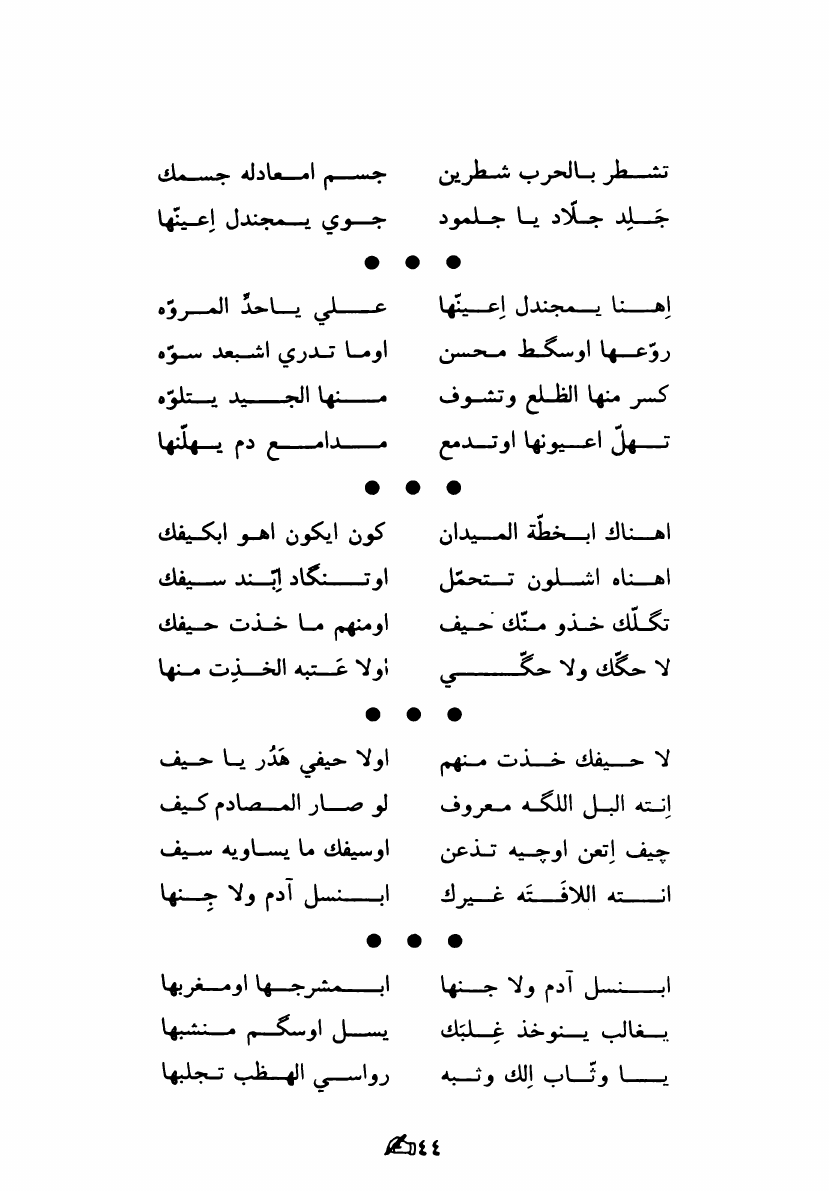 تشطر بالحرب شطرين جسم امعادله جسمك
جَلِد جلّاد يا جلمود جوي يمجندل إعينّها
● ● ●
إهنا يمجندل إعينّها علي ياحدِّ المروّه
روّعها اوسگط محسن اوما تدري اشبعد سوّه
كسر منها الظلع وتشوف منها الجيد يتلوّه
تهلّ اعيونها اوتدمع مدامع دم يهلّنها
● ● ●
اهناك ابخطّة الميدان كون ايكون اهو ابكيفك
اهناه اشلون تتحمّل اوتنگاد إبّند سيفك
تگلّك خذو منّك حيف اومنهم ما خذت حيفك
لا حگّك ولا حگّي أولا عَتبه الخذِت منها
● ● ●
لا حيفك خذت منهم اولا حيفي هَدُر يا حيف
إنته البل اللگه معروف لو صار المصادم كيف
چيف إتعن اوچيه تذعن اوسيفك ما يساويه سيف
انته اللافَتَه غيرك ابنسل آدم ولا جِنها
● ● ●
ابنسل آدم ولا جنها ابمشرجها اومغربها
يغالب ينوخذ غِلبَك يسل اوسگم منشبها
يا وثّاب إلك وثبه رواسي الهظب تجلبها
٤٤